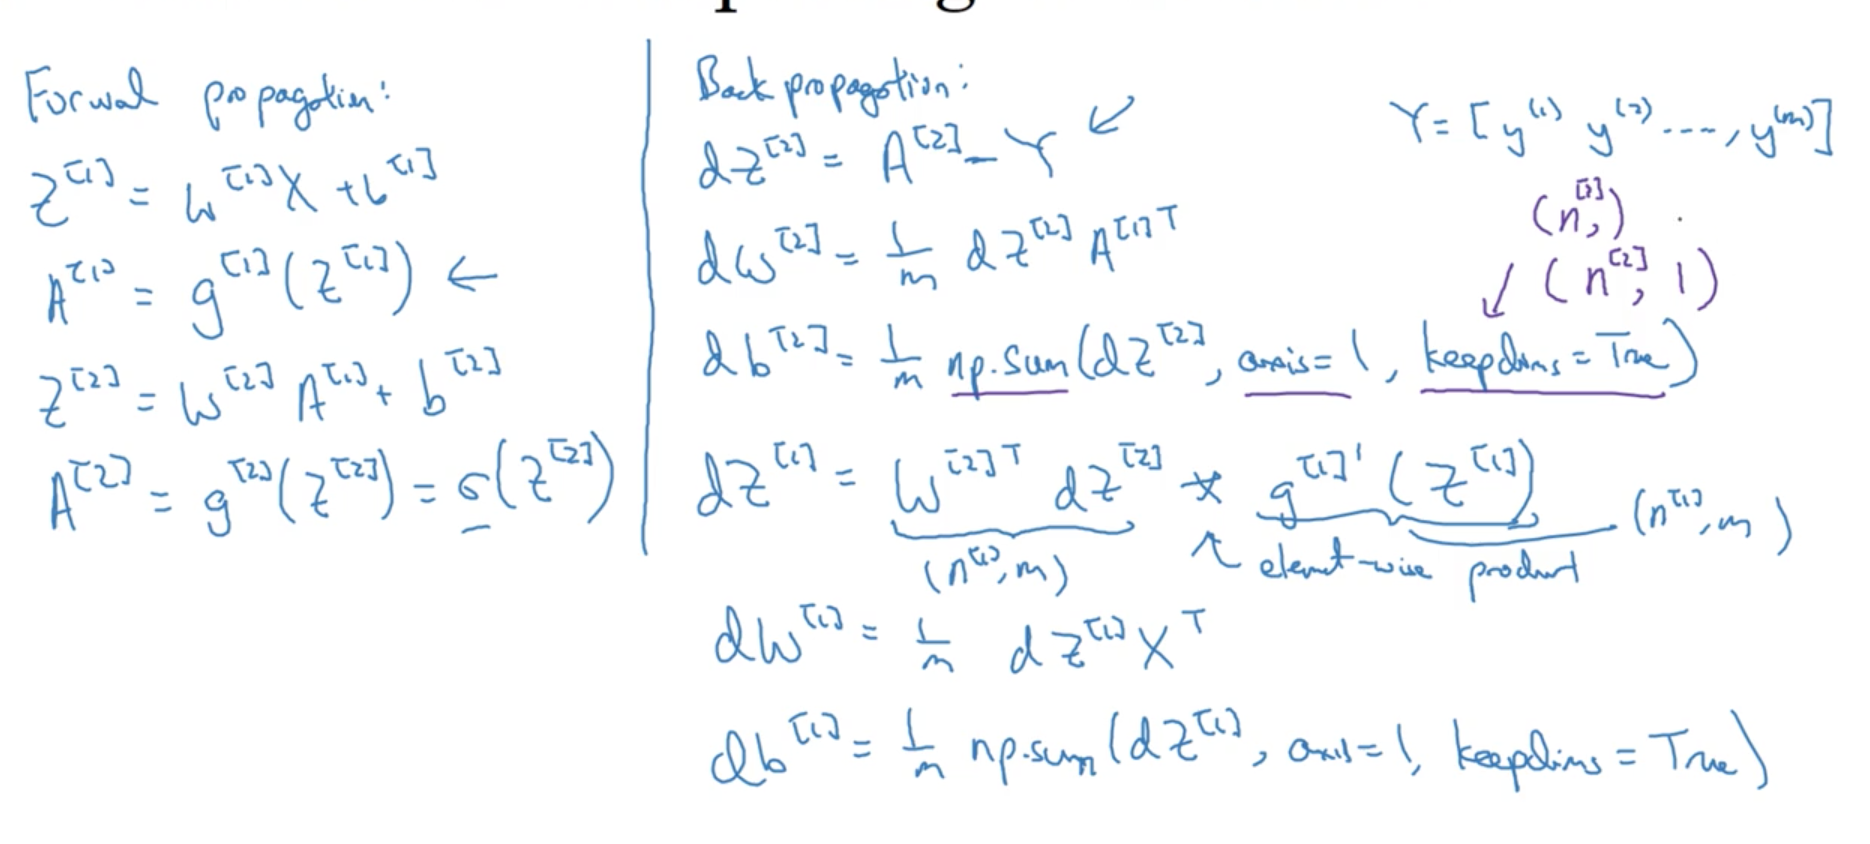 Forwal propagation:
Z^[1] = W^[1]X + b^[1]
A^[1] = g^[1](Z^[1]) ←
Z^[2] = W^[2] A^[1] + b^[2]
A^[2] = g^[2](Z^[2]) = σ(Z^[2])
Back propagation:
dZ^[2] = A^[2] - Y ↙
dW^[2] = 1/m dZ^[2] A^[1]T
db^[2] = 1/m np.sum(dZ^[2], axis=1, keepdims=True)
dZ^[1] = W^[2]T dZ^[2] * g^[1]'(Z^[1])
(n^[1], m)
↖ element-wise product
(n^[1], m)
dW^[1] = 1/m dZ^[1] X^T
db^[1] = 1/m np.sum(dZ^[1], axis=1, keepdims=True)
Y = [y^(1) y^(2) ...., y^(m)]
(n^[2],)
↙ (n^[2], 1)